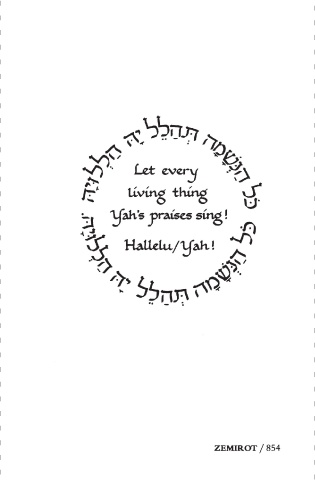 כֹּל הַנְּשָׁמָה תְּהַלֵּל יָהּ הַלְלוּיָהּ
כֹּל הַנְּשָׁמָה תְּהַלֵּל יָהּ הַלְלוּיָהּ
Let every
living thing
Yah's praises sing!
Hallelu/Yah!
ZEMIROT / 854